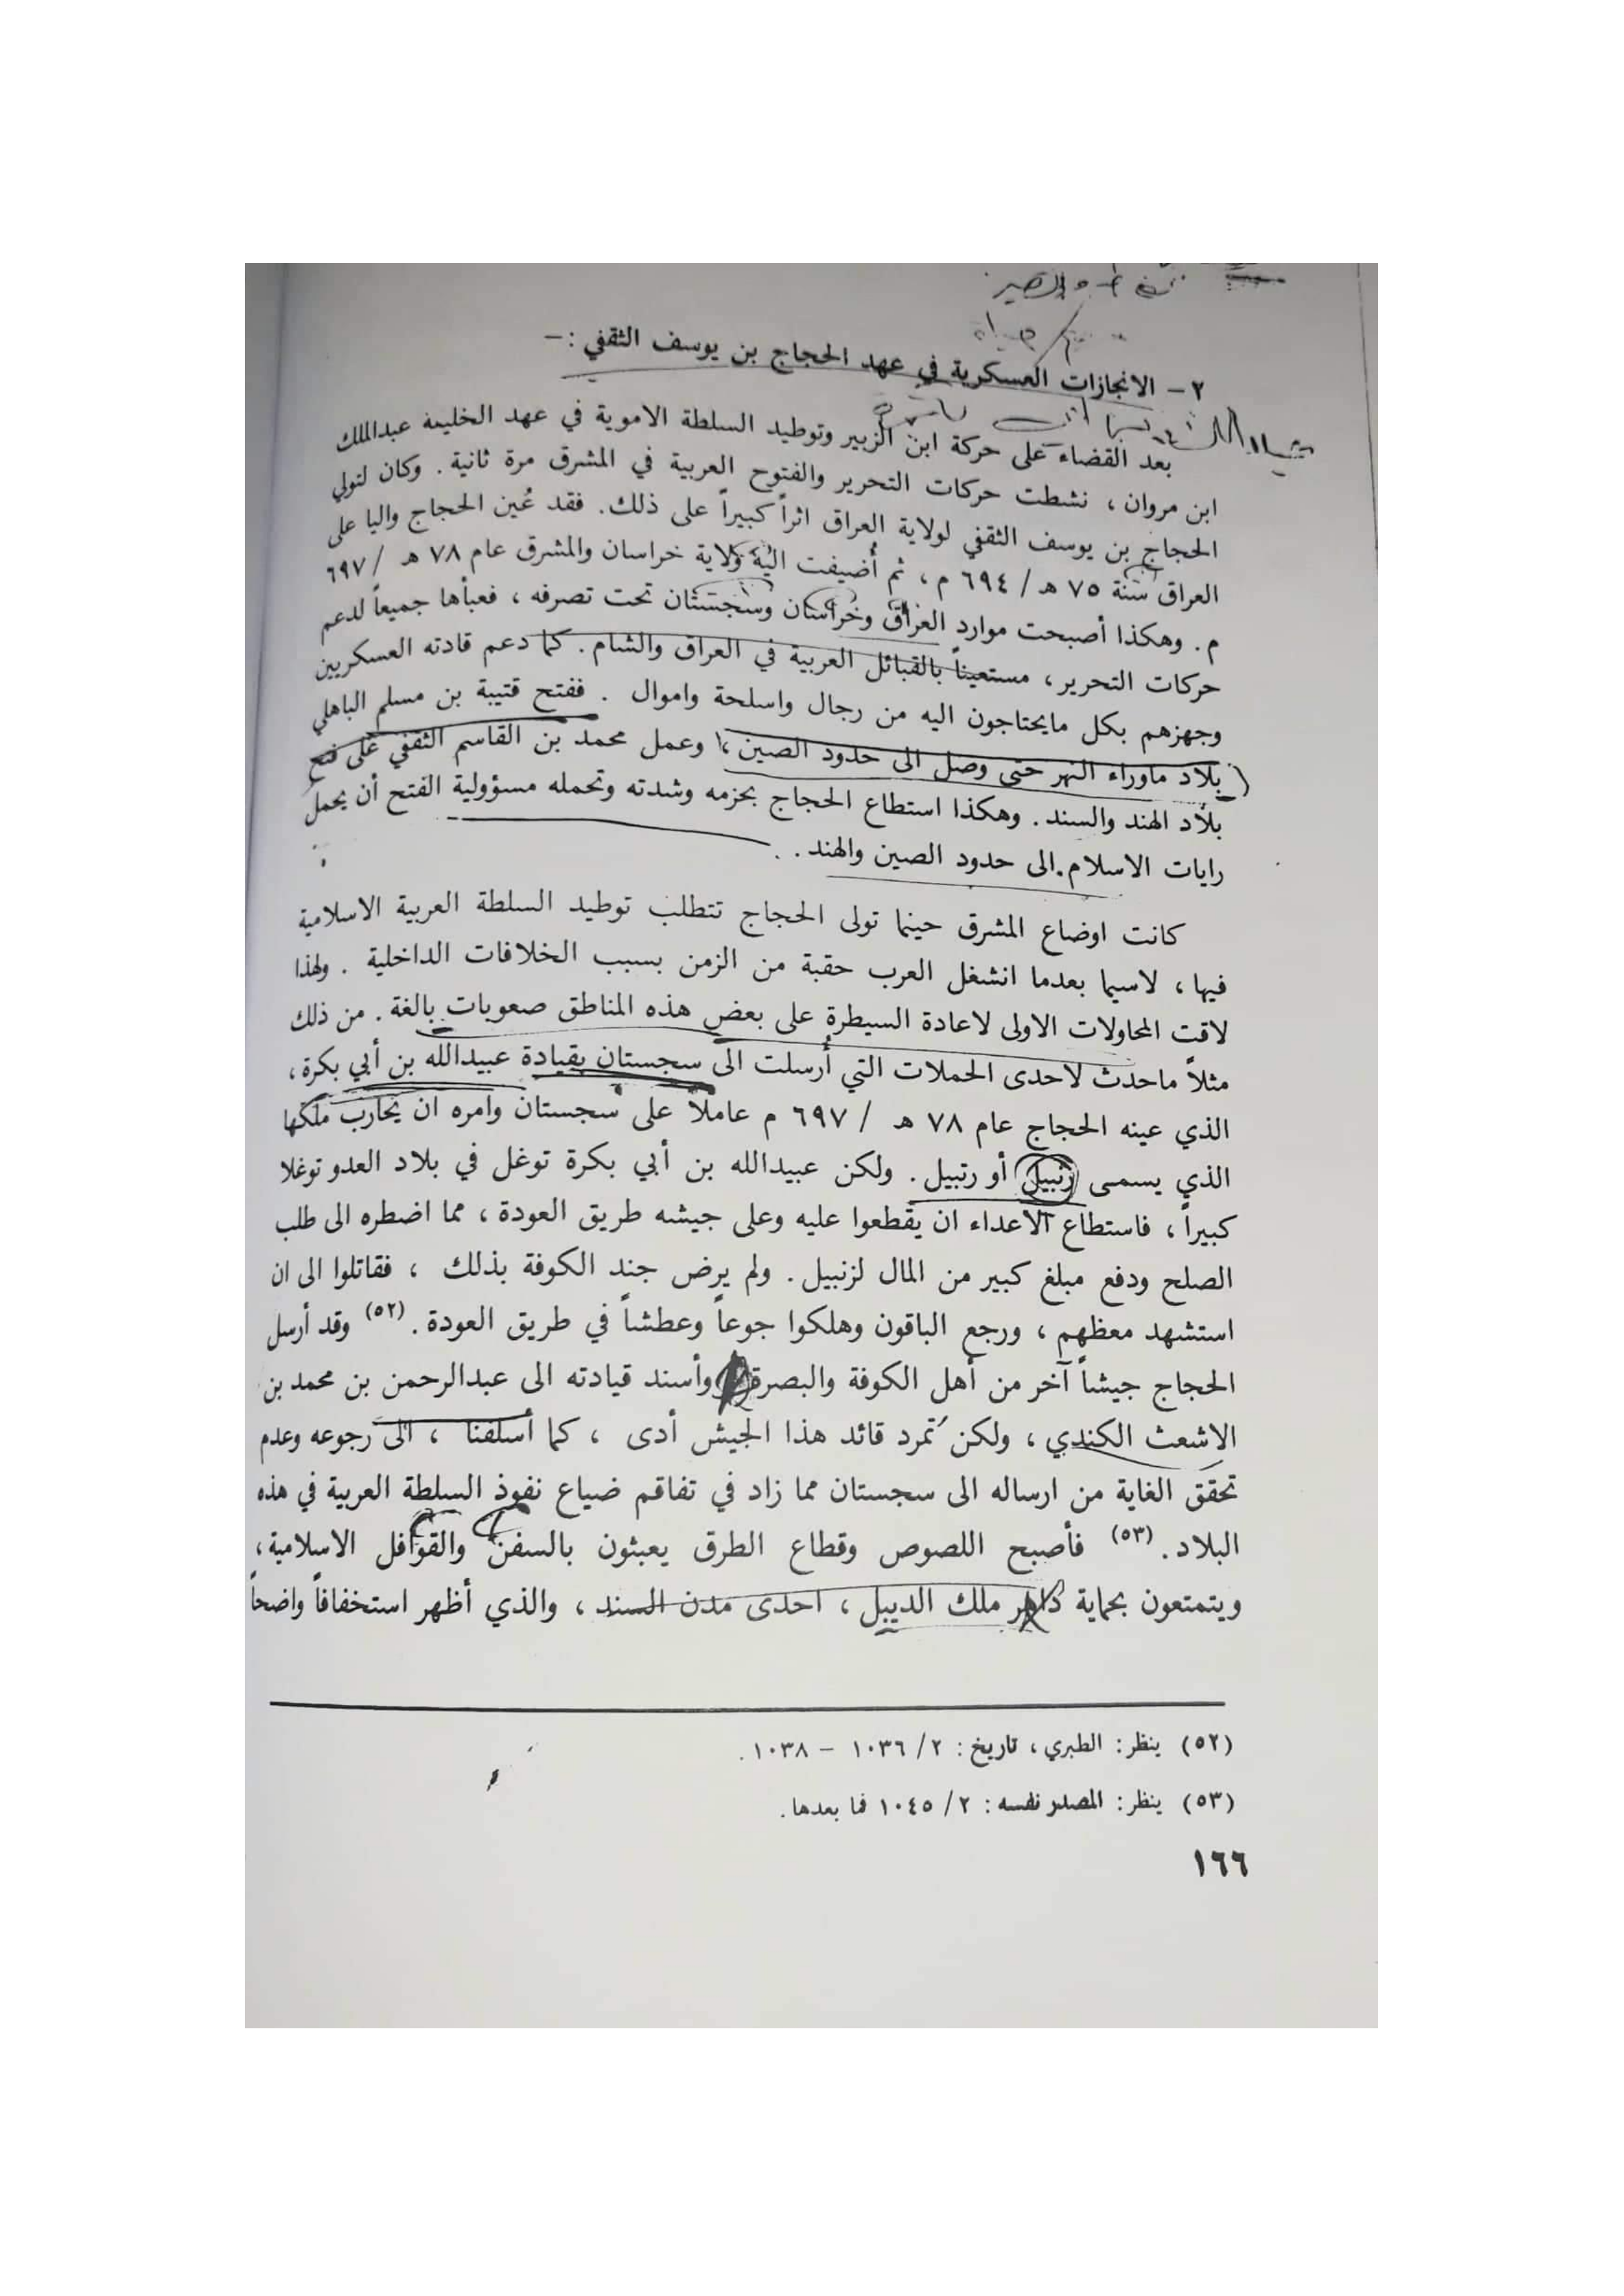 ٢ - الانجازات العسكرية في عهد الحجاج بن يوسف الثقفي : -
بعد القضاء على حركة ابن الزبير وتوطيد السلطة الاموية في عهد الخليفة عبدالملك
ابن مروان ، نشطت حركات التحرير والفتوح العربية في المشرق مرة ثانية . وكان لتولي
الحجاج بن يوسف الثقفي لولاية العراق اثراً كبيراً على ذلك. فقد عُين الحجاج واليا على
العراق سنة ٧٥ هـ / ٦٩٤ م ، ثم أُضيفت اليه ولاية خراسان والمشرق عام ٧٨ هـ / ٦٩٧
م . وهكذا أصبحت موارد العراق وخراسان وسجستان تحت تصرفه ، فعبأها جميعاً لدعم
حركات التحرير ، مستعيناً بالقبائل العربية في العراق والشام . كما دعم قادته العسكريين
وجهزهم بكل مايحتاجون اليه من رجال واسلحة واموال . ففتح قتيبة بن مسلم الباهلي
بلاد ماوراء النهر حتى وصل الى حدود الصين ، وعمل محمد بن القاسم الثقفي على فتح
بلاد الهند والسند . وهكذا استطاع الحجاج بحزمه وشدته وتحمله مسؤولية الفتح أن يحمل
رايات الاسلام الى حدود الصين والهند .
كانت اوضاع المشرق حينما تولى الحجاج تتطلب توطيد السلطة العربية الاسلامية
فيها ، لاسيما بعدما انشغل العرب حقبة من الزمن بسبب الخلافات الداخلية . ولهذا
لاقت المحاولات الاولى لاعادة السيطرة على بعض هذه المناطق صعوبات بالغة . من ذلك
مثلاً ماحدث لاحدى الحملات التي أُرسلت الى سجستان بقيادة عبيدالله بن أبي بكرة ،
الذي عينه الحجاج عام ٧٨ هـ / ٦٩٧ م عاملاً على سجستان وامره ان يحارب ملكها
الذي يسمى زنبيل أو رتبيل . ولكن عبيدالله بن أبي بكرة توغل في بلاد العدو توغلا
كبيراً ، فاستطاع الاعداء ان يقطعوا عليه وعلى جيشه طريق العودة ، مما اضطره الى طلب
الصلح ودفع مبلغ كبير من المال لزنبيل . ولم يرض جند الكوفة بذلك ، فقاتلوا الى ان
استشهد معظهم ، ورجع الباقون وهلكوا جوعاً وعطشاً في طريق العودة . (٥٢) وقد أرسل
الحجاج جيشاً آخر من أهل الكوفة والبصرة وأسند قيادته الى عبدالرحمن بن محمد بن
الاشعث الكندي ، ولكن تمرد قائد هذا الجيش أدى ، كما أسلفنا ، الى رجوعه وعدم
تحقق الغاية من ارساله الى سجستان مما زاد في تفاقم ضياع نفوذ السلطة العربية في هذه
البلاد . (٥٣) فأصبح اللصوص وقطاع الطرق يعبثون بالسفن والقوافل الاسلامية ،
ويتمتعون بحماية داهر ملك الديبل ، احدى مدن السند ، والذي أظهر استخفافاً واضحاً
(٥٢) ينظر : الطبري ، تاريخ : ٢ / ١٠٣٦ - ١٠٣٨ .
(٥٣) ينظر : المصدر نفسه : ٢ / ١٠٤٥ فما بعدها .
١٦٦